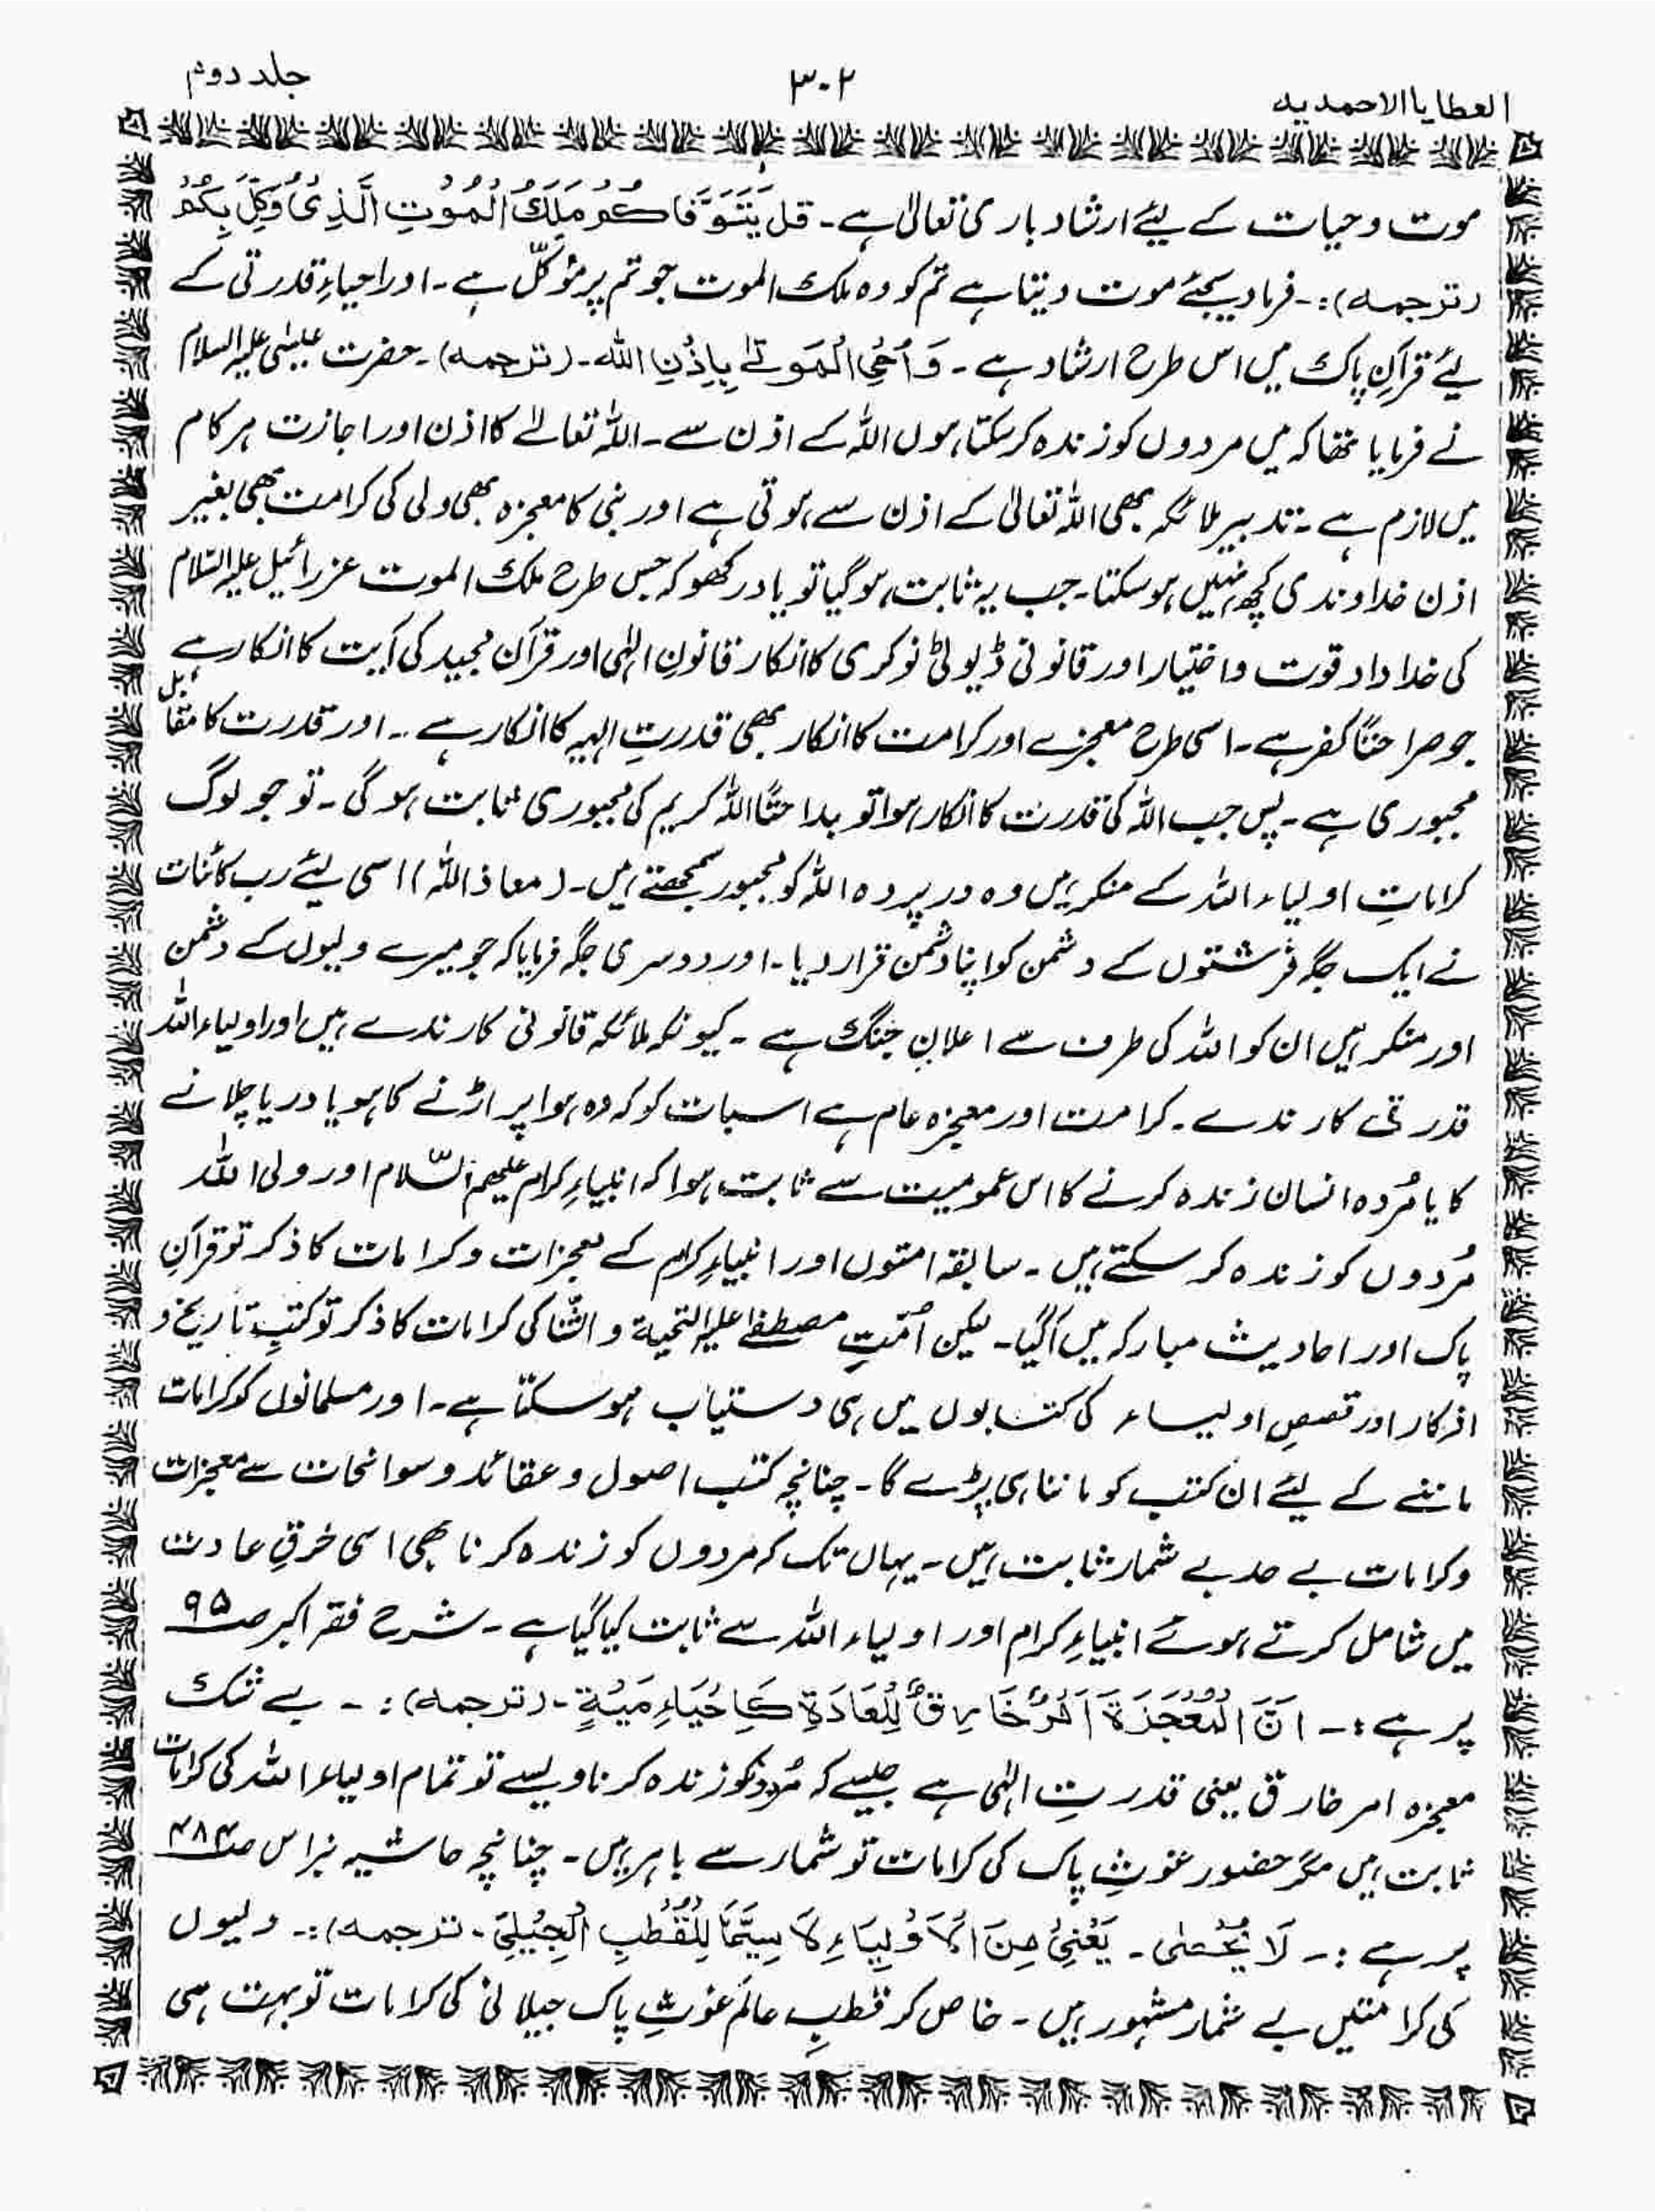 العطایا الاحمدیہ
۳۰۲
جلد دوم
موت و حیات کے لیئے ارشاد باری تعالیٰ ہے۔ قل یَتَوَفَّاکُم مَلَکُ الْمَوْتِ الَّذِیْ وُکِّلَ بِکُمْ
(ترجمہ):۔ فرما دیجیئے موت دیتا ہے تم کو وہ ملک الموت جو تم پر مؤکلّ ہے۔ اور احیاءِ قدرتی کے
لیئے قرآنِ پاک میں اس طرح ارشاد ہے۔ وَ اُحْیِ الْمَوتٰے بِاِذْنِ اللہ۔ (ترجمہ)۔ حضرت عیسٰی علیہ السلام
نے فرمایا تھا کہ میں مردوں کو زندہ کر سکتا ہوں اللہ کے اذن سے۔ اللہ تعالےٰ کا اذن اور اجازت ہر کام
میں لازم ہے۔ تدبیر ملائکہ بھی اللہ تعالیٰ کے اذن سے ہوتی ہے اور نبی کا معجزہ بھی ولی کی کرامت بھی بغیر
اذن خداوندی کچھ نہیں ہو سکتا۔ جب یہ ثابت ہو گیا تو یاد رکھو کہ جس طرح ملک الموت عزرائیل علیہ السّلام
کی خداداد قوت و اختیار اور قانونی ڈیوٹی نوکری کا انکار قانونِ الٰہی اور قرآن مجید کی آیت کا انکار ہے
جو صراحتًا کفر ہے۔ اسی طرح معجزے اور کرامت کا انکار بھی قدرتِ الٰہیہ کا انکار ہے۔ اور قدرت کا مقابل
مجبوری ہے۔ پس جب اللہ کی قدرت کا انکار ہوا تو بداھتًا اللہ کریم کی مجبوری ثابت ہو گی۔ تو جو لوگ
کراماتِ اولیاء اللہ کے منکر ہیں وہ در پردہ اللہ کو مجبور سمجھتے ہیں۔ (معاذ اللہ) اسی لیئے رب کائنات
نے ایک جگہ فرشتوں کے دشمن کو اپنا دشمن قرار دیا۔ اور دوسری جگہ فرمایا کہ جو میرے ولیوں کے دشمن
اور منکر ہیں ان کو اللہ کی طرف سے اعلانِ جنگ ہے۔ کیونکہ ملائکہ قانونی کارندے ہیں اور اولیاء اللہ
قدرتی کارندے۔ کرامت اور معجزہ عام ہے اسبات کو کہ وہ ہوا پر اڑنے کا ہو یا دریا چلانے
کا یا مُردہ انسان زندہ کرنے کا اس عمومیت سے ثابت ہوا کہ انبیاءِ کرام علیہم السّلام اور ولی اللہ
مُردوں کو زندہ کر سکتے ہیں۔ سابقہ امتوں اور انبیاءِ کرام کے معجزات و کرامات کا ذکر تو قرآنِ
پاک اور احادیث مبارکہ میں آگیا۔ لیکن اُمّتِ مصطفےٰ علیہ التحیۃ و الثّنا کی کرامات کا ذکر تو کتبِ تاریخ و
اذکار اور قصصِ اولیاء کی کتابوں میں ہی دستیاب ہو سکتا ہے۔ اور مسلمانوں کو کرامات
ماننے کے لیئے ان کتب کو ماننا ہی پڑے گا۔ چنانچہ کتب اصول و عقائد و سوانحات سے معجزات
و کرامات بے حد بے شمار ثابت ہیں۔ یہاں تک کہ مردوں کو زندہ کرنا بھی اسی خرقِ عادت
میں شامل کرتے ہوئے انبیاءِ کرام اور اولیاء اللہ سے ثابت کیا گیا ہے۔ شرح فقہ اکبر صـ۹۵
پر ہے:۔ اَنَّ الْمُعْجَزَۃَ اَمْرٌ خَارِقٌ لِلْعَادَۃِ کَاِحْیَاءِ مَیْتٍ۔ (ترجمہ):۔ بے شک
معجزہ امر خارق یعنی قدرتِ الٰہی ہے جیسے کہ مُردہ کو زندہ کرنا ویسے تو تمام اولیاء اللہ کی کرامات
ثابت ہیں مگر حضور غوثِ پاک کی کرامات تو شمار سے باہر ہیں۔ چنانچہ حاشیہ نبراس صـ۴۸۴
پر ہے:۔ لَا یُحْصٰی۔ یَعْنِیْ مِنَ الْاَوْلِیَاءِ لَا سِیَّمَا لِلْقُطْبِ الْجِیْلِیِّ۔ ترجمہ):۔ ولیوں
کی کرامتیں بے شمار مشہور ہیں۔ خاص کر قطبِ عالَم غوثِ پاک جیلانی کی کرامات تو بہت ہی